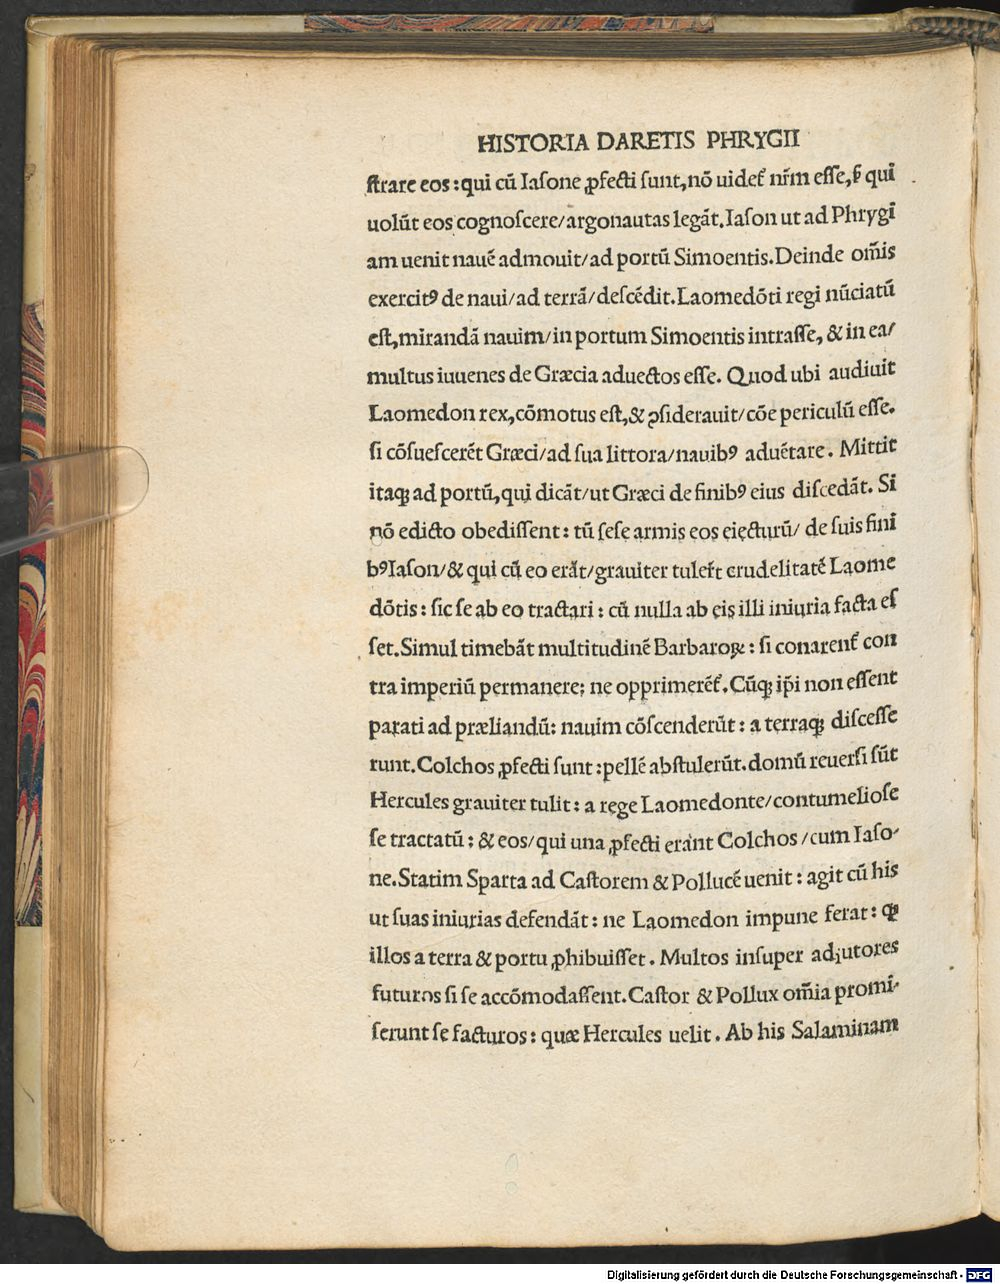 HISTORIA DARETIS PHRYGII
ſtrare eos: qui cū Iaſone ꝓfecti ſunt, nō uidet᷑ nr̄m eſſe, ẜ qui
uolūt eos cognoſcere/argonautas legāt. Iaſon ut ad Phrygi
am uenit nauē admouit/ad portū Simoentis. Deinde om̄is
exercitꝰ de naui/ad terrā/deſcēdit. Laomedōti regi nūciatū
eſt, mirandā nauim/in portum Simoentis intraſſe, & in ea/
multus iuuenes de Græcia aduectos eſſe. Quod ubi audiuit
Laomedon rex, cōmotus eſt, & ꝯſiderauit/cōe periculū eſſe.
ſi cōſueſcerēt Græci/ad ſua littora/nauibꝰ aduētare. Mittit
itaqꝫ ad portū, qui dicāt/ut Græci de finibꝰ eius diſcedāt. Si
nō edicto obediſſent: tū ſeſe armis eos eiecturū/ de ſuis fini
bꝰ Iaſon/& qui cū eo erāt/grauiter tuler̄t crudelitatē Laome
dōtis: ſic ſe ab eo tractari: cū nulla ab eis illi iniuria facta eſ
ſet. Simul timebāt multitudinē Barbaroꝝ: ſi conarent᷑ con
tra imperiū permanere; ne opprimerēt᷑. Cūqꝫ ip̄i non eſſent
parati ad præliandū: nauim cōſcenderūt: a terraqꝫ diſceſſe
runt. Colchos ꝓfecti ſunt: pellē abſtulerūt. domū reuerſi ſūt
Hercules grauiter tulit: a rege Laomedonte/contumelioſe
ſe tractatū: & eos/qui una ꝓfecti erant Colchos/cum Iaſo-
ne. Statim Sparta ad Caſtorem & Pollucē uenit: agit cū his
ut ſuas iniurias defendāt: ne Laomedon impune ferat: ꝙ
illos a terra & portu ꝓhibuiſſet. Multos inſuper adiutores
futuros ſi ſe accōmodaſſent. Caſtor & Pollux om̄ia promi-
ſerunt ſe facturos: quæ Hercules uelit. Ab his Salaminam
Digitalisierung gefördert durch die Deutsche Forschungsgemeinschaft - DFG